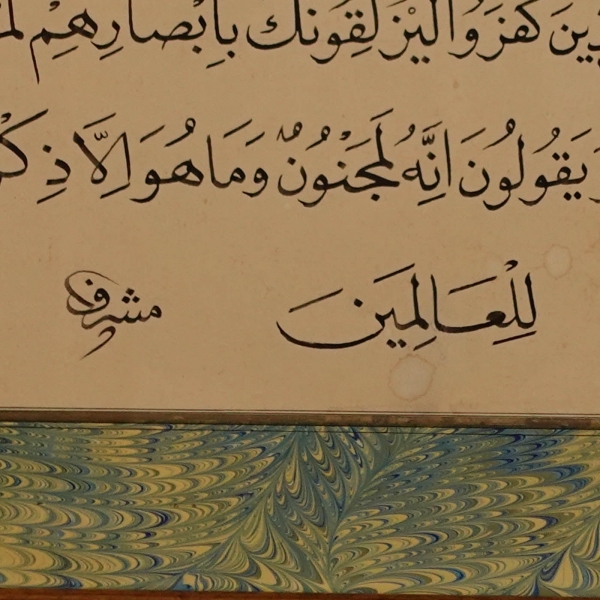 كفروا ليزلقونك بابصارهم
ويقولون اِنَّهُ لَمَجْنُونٌ وَمَا هُوَ اِلَّا ذِكْ
لِلْعَالَمِينَ مشرف